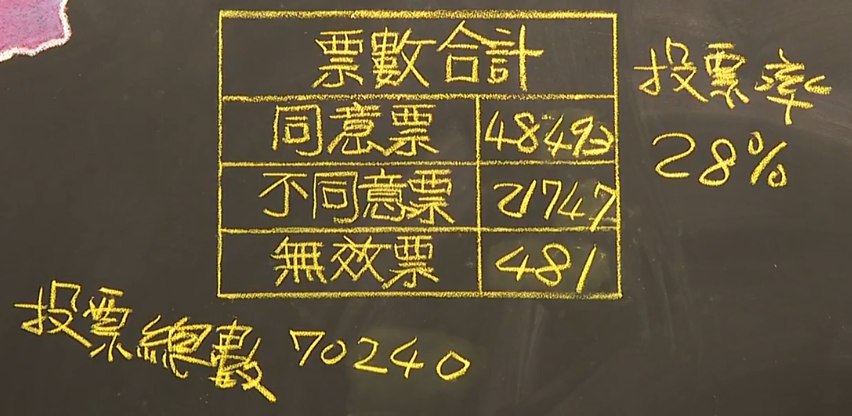 票數合計
同意票 48493
不同意票 21747
無效票 481
投票率
28%
投票總數 70240